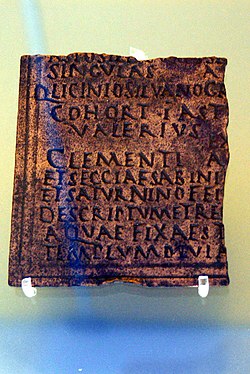 SINGULAS A
D LICINIO SILVANO GA
COHORT I AST
VALERIUS
CLEMENTI A
ET SECCIAE SABINI
ET SATURNINO FEI
DESCRIPTUM ET RE
QUAE FIXA EST